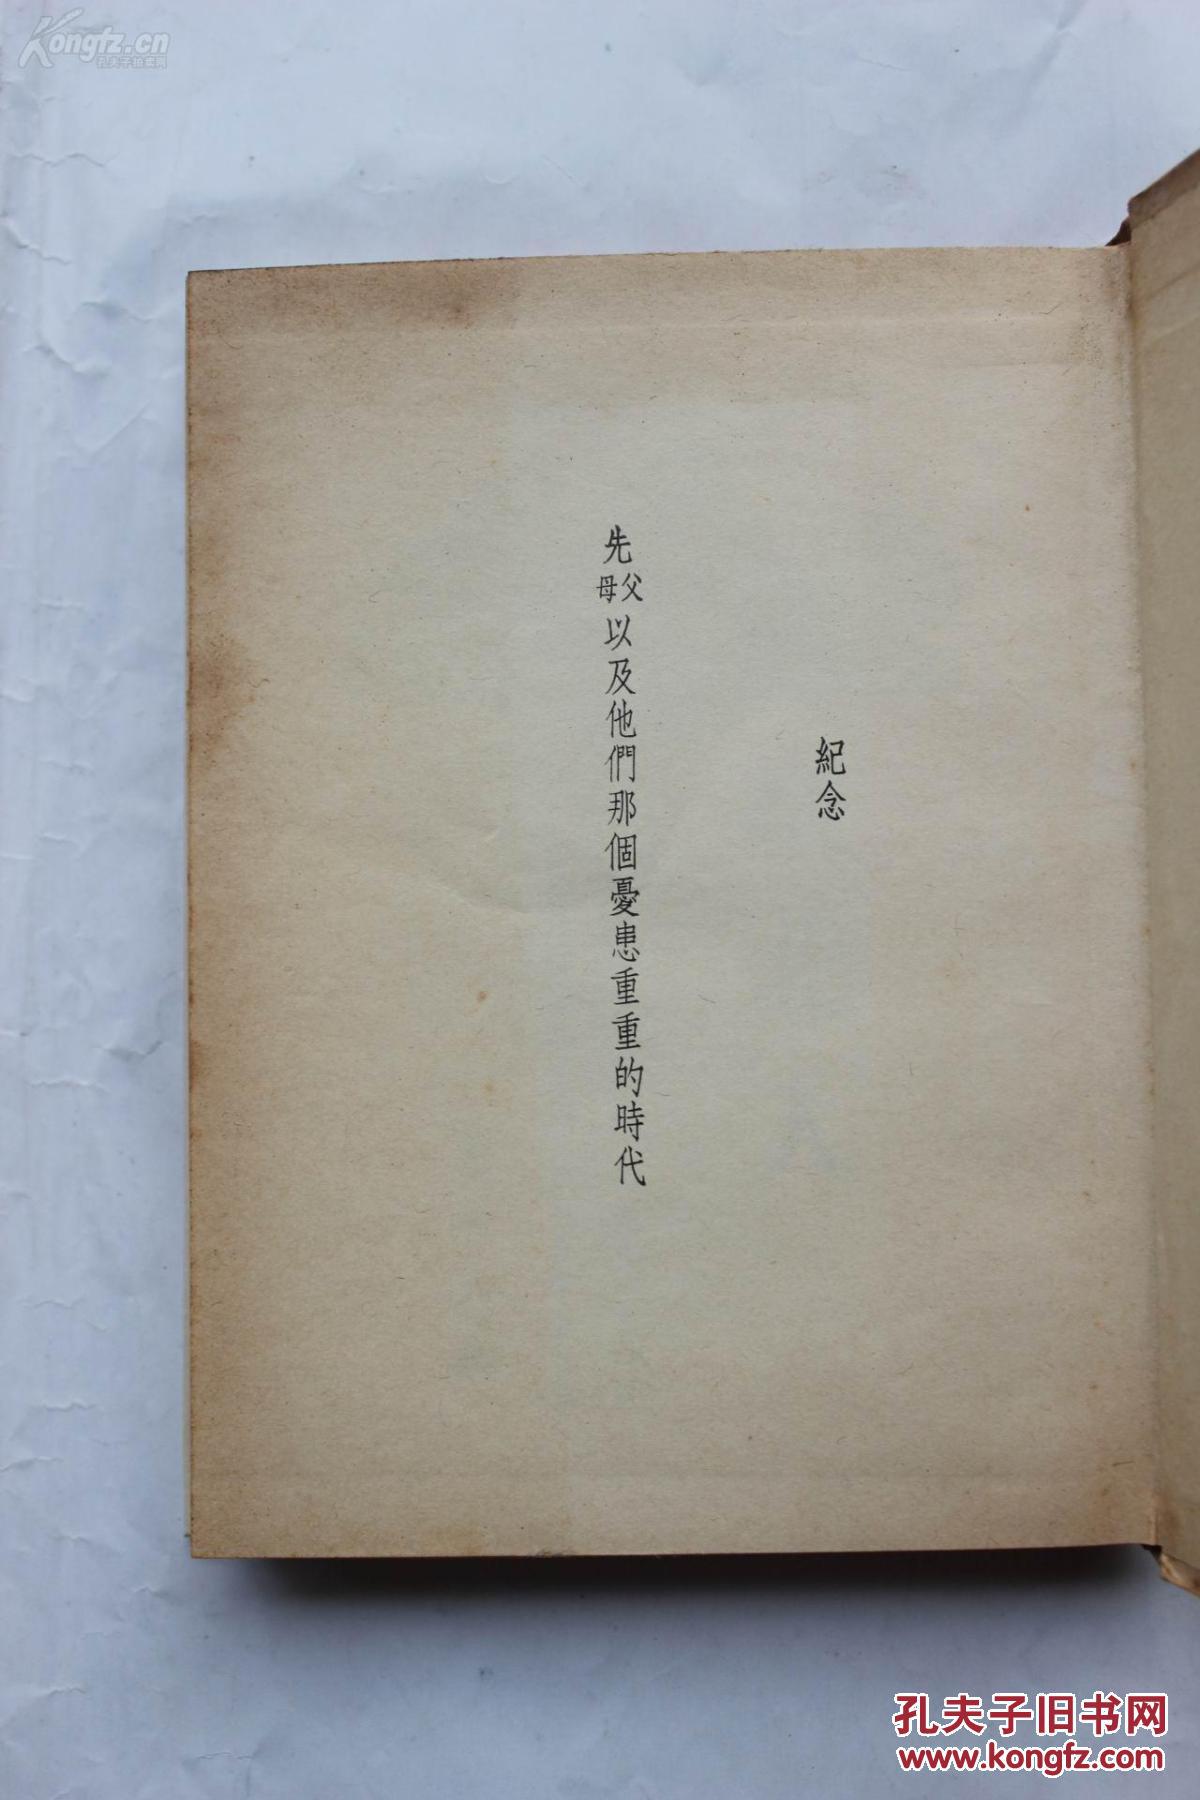 Kongfz.cn
孔夫子拍卖网
紀念
先父母以及他們那個憂患重重的時代
孔夫子旧书网
www.kongfz.com